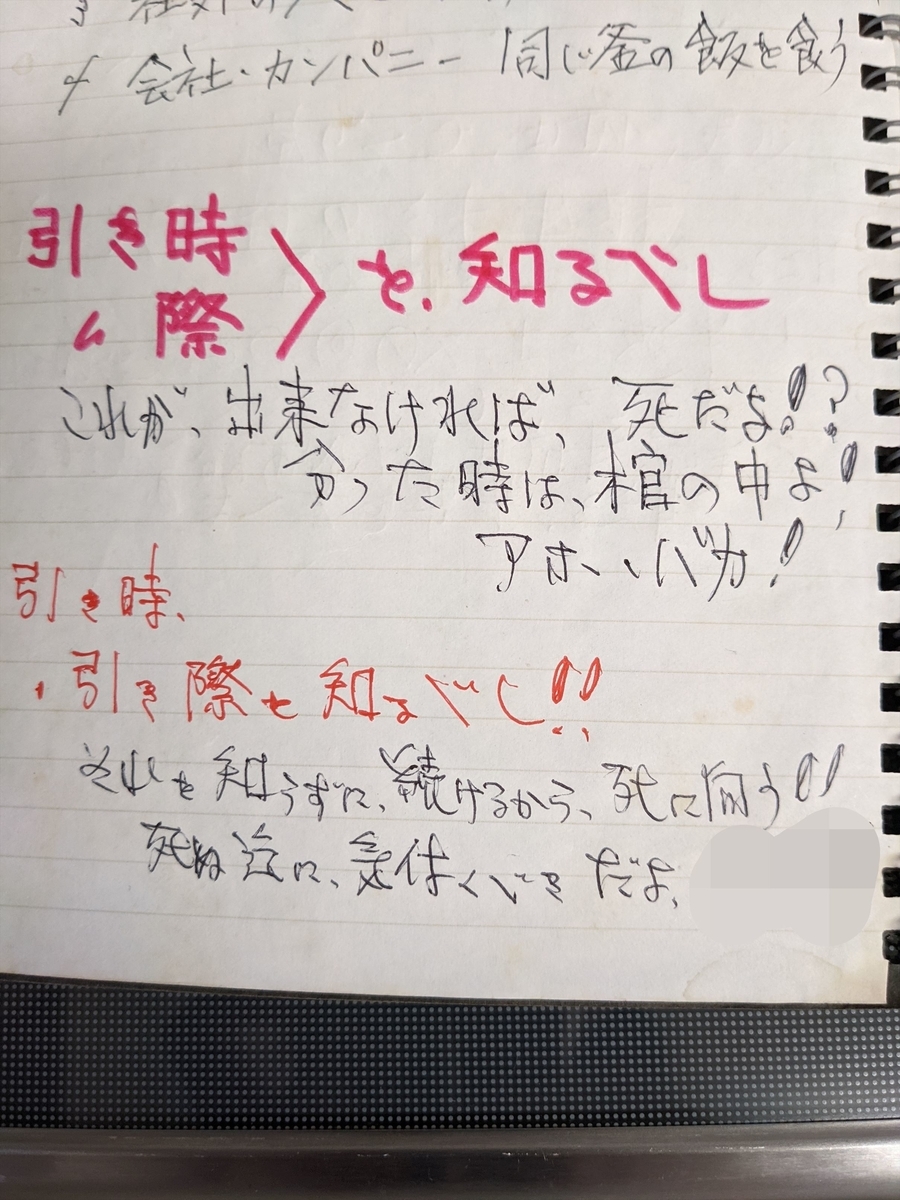 4 会社・カンパニー 同じ釜の飯を食う
引き時
〃 際 〉を、知るべし
これが、出来なければ、死だよ!?
分った時は、棺の中よ!
アホ、バカ!
引き時、
・引き際を知るべし!!
それを知らずに、続けるから、死に向う!!
死ぬ迄に、気付くべきだよ、